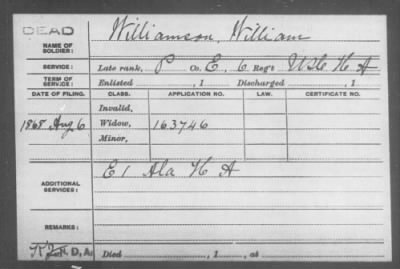 DEAD
NAME OF SOLDIER: Williamson, William
SERVICE: Late rank, P Co. E, 6 Reg't US C H A
TERM OF SERVICE: Enlisted , 1 Discharged , 1
DATE OF FILING. CLASS. APPLICATION NO. LAW. CERTIFICATE NO.
Invalid,
1868 Aug 6 Widow, 163746
Minor,
ADDITIONAL SERVICES: E 1 Ala H A
REMARKS:
D, A. Died , 1 , at